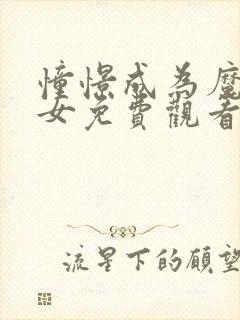 憧憬成為魔
女免費觀看
流星下的願望